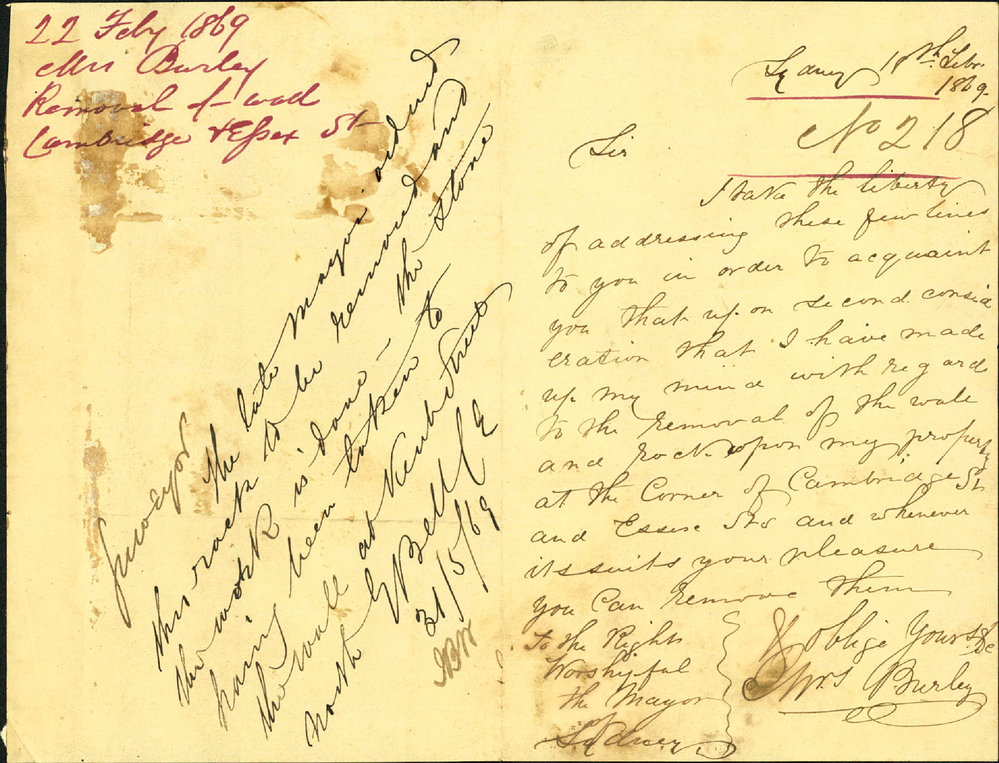 22 Feby 1869
Mrs Burley
Removal of wall
Cambridge & Essex St
Surveyor
The late Mayor ordered
this rock to be removed and
the work is done - the stone
having been taken to
the wall at Kent Street
north
E Bell C E
31/5/69
Sydney 18th Febr.
1869
No 218
Sir
I take the liberty
of addressing these few lines
to you in order to acquaint
you that upon second consid
eration that I have made
up my mind with regard
to the removal of the wale
and rock upon my property
at the Corner of Cambridge St
and Essex Sts and whenever
it suits your pleasure
you can remove them
& oblige Yours &c
Mrs Burley
To the Right
Worshipful
the Mayor
of
Sydney